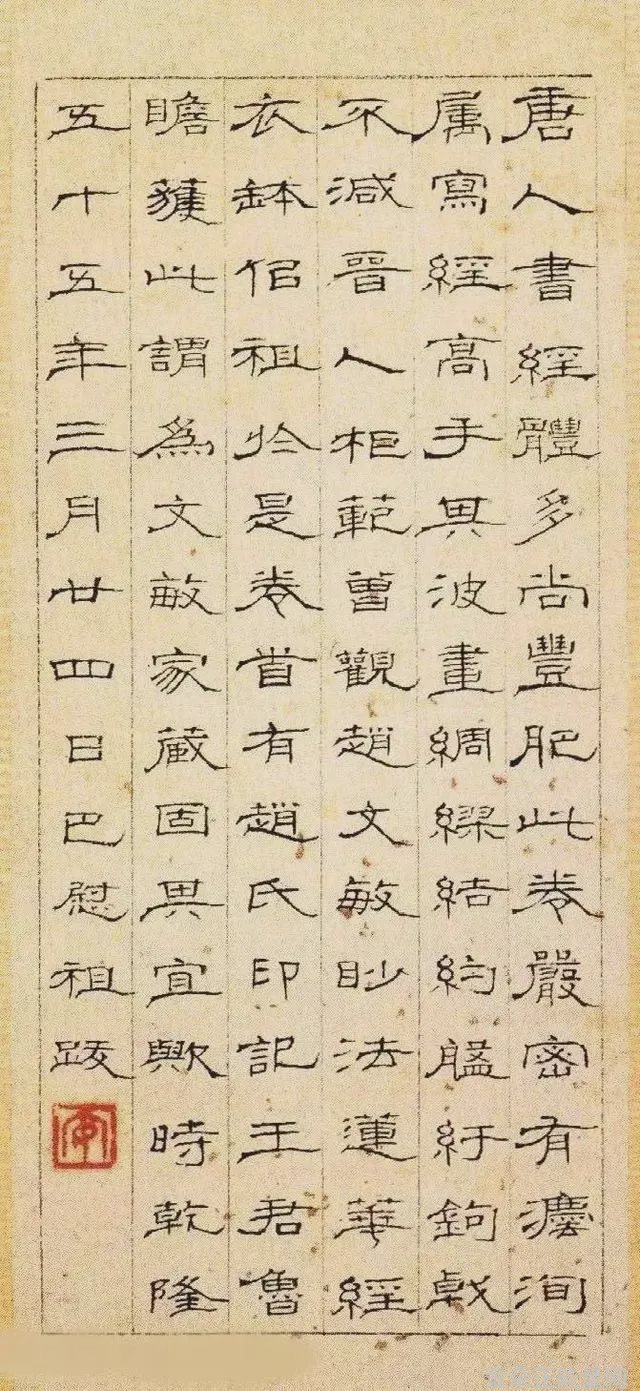 唐人書經體多尚豐肥此卷嚴密有灋洵
属寫經高手其波畫綢繆結約紆鉤戟
不減晉人柜範曾觀趙文敏眇法蓮華經
衣缽佀祖於是卷首有趙氏印記王君魯
瞻獲此謂爲文敏家藏固其宜歟時乾隆
五十五年三月廿四日巴慰祖跋